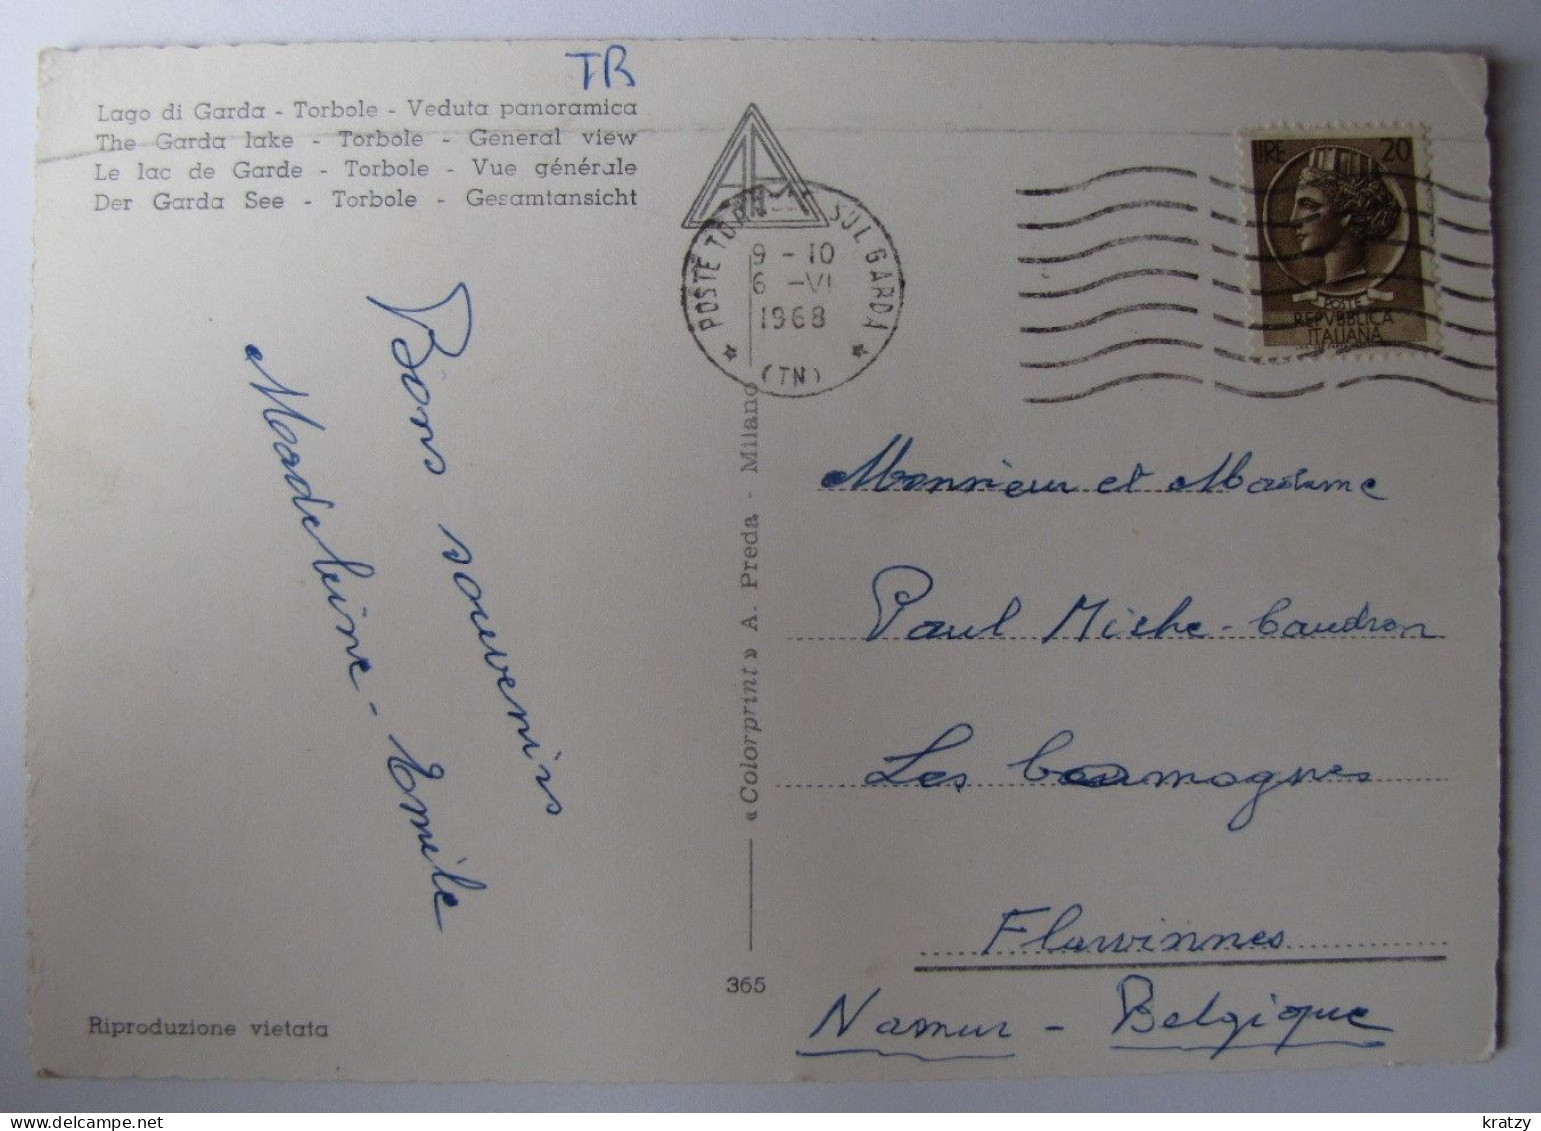 TB
Lago di Garda - Torbole - Veduta panoramica
The Garda lake - Torbole - General view
Le lac de Garde - Torbole - Vue générale
Der Garda See - Torbole - Gesamtansicht
POSTE SUL GARDA
9 - 10
6 -VI
1968
(TN)
LIRE 20
POSTE
REPVBBLICA
ITALIANA
Bons souvenirs
Madeleine - Emile
Monsieur et Madame
Paul Miche - Caudron
Les
Flawinnes
Namur - Belgique
« Colorprint » A. Preda - Milano
365
Riproduzione vietata
kratzy